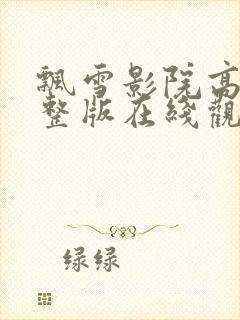 飄雪影院高
整版在綫觀
绿绿